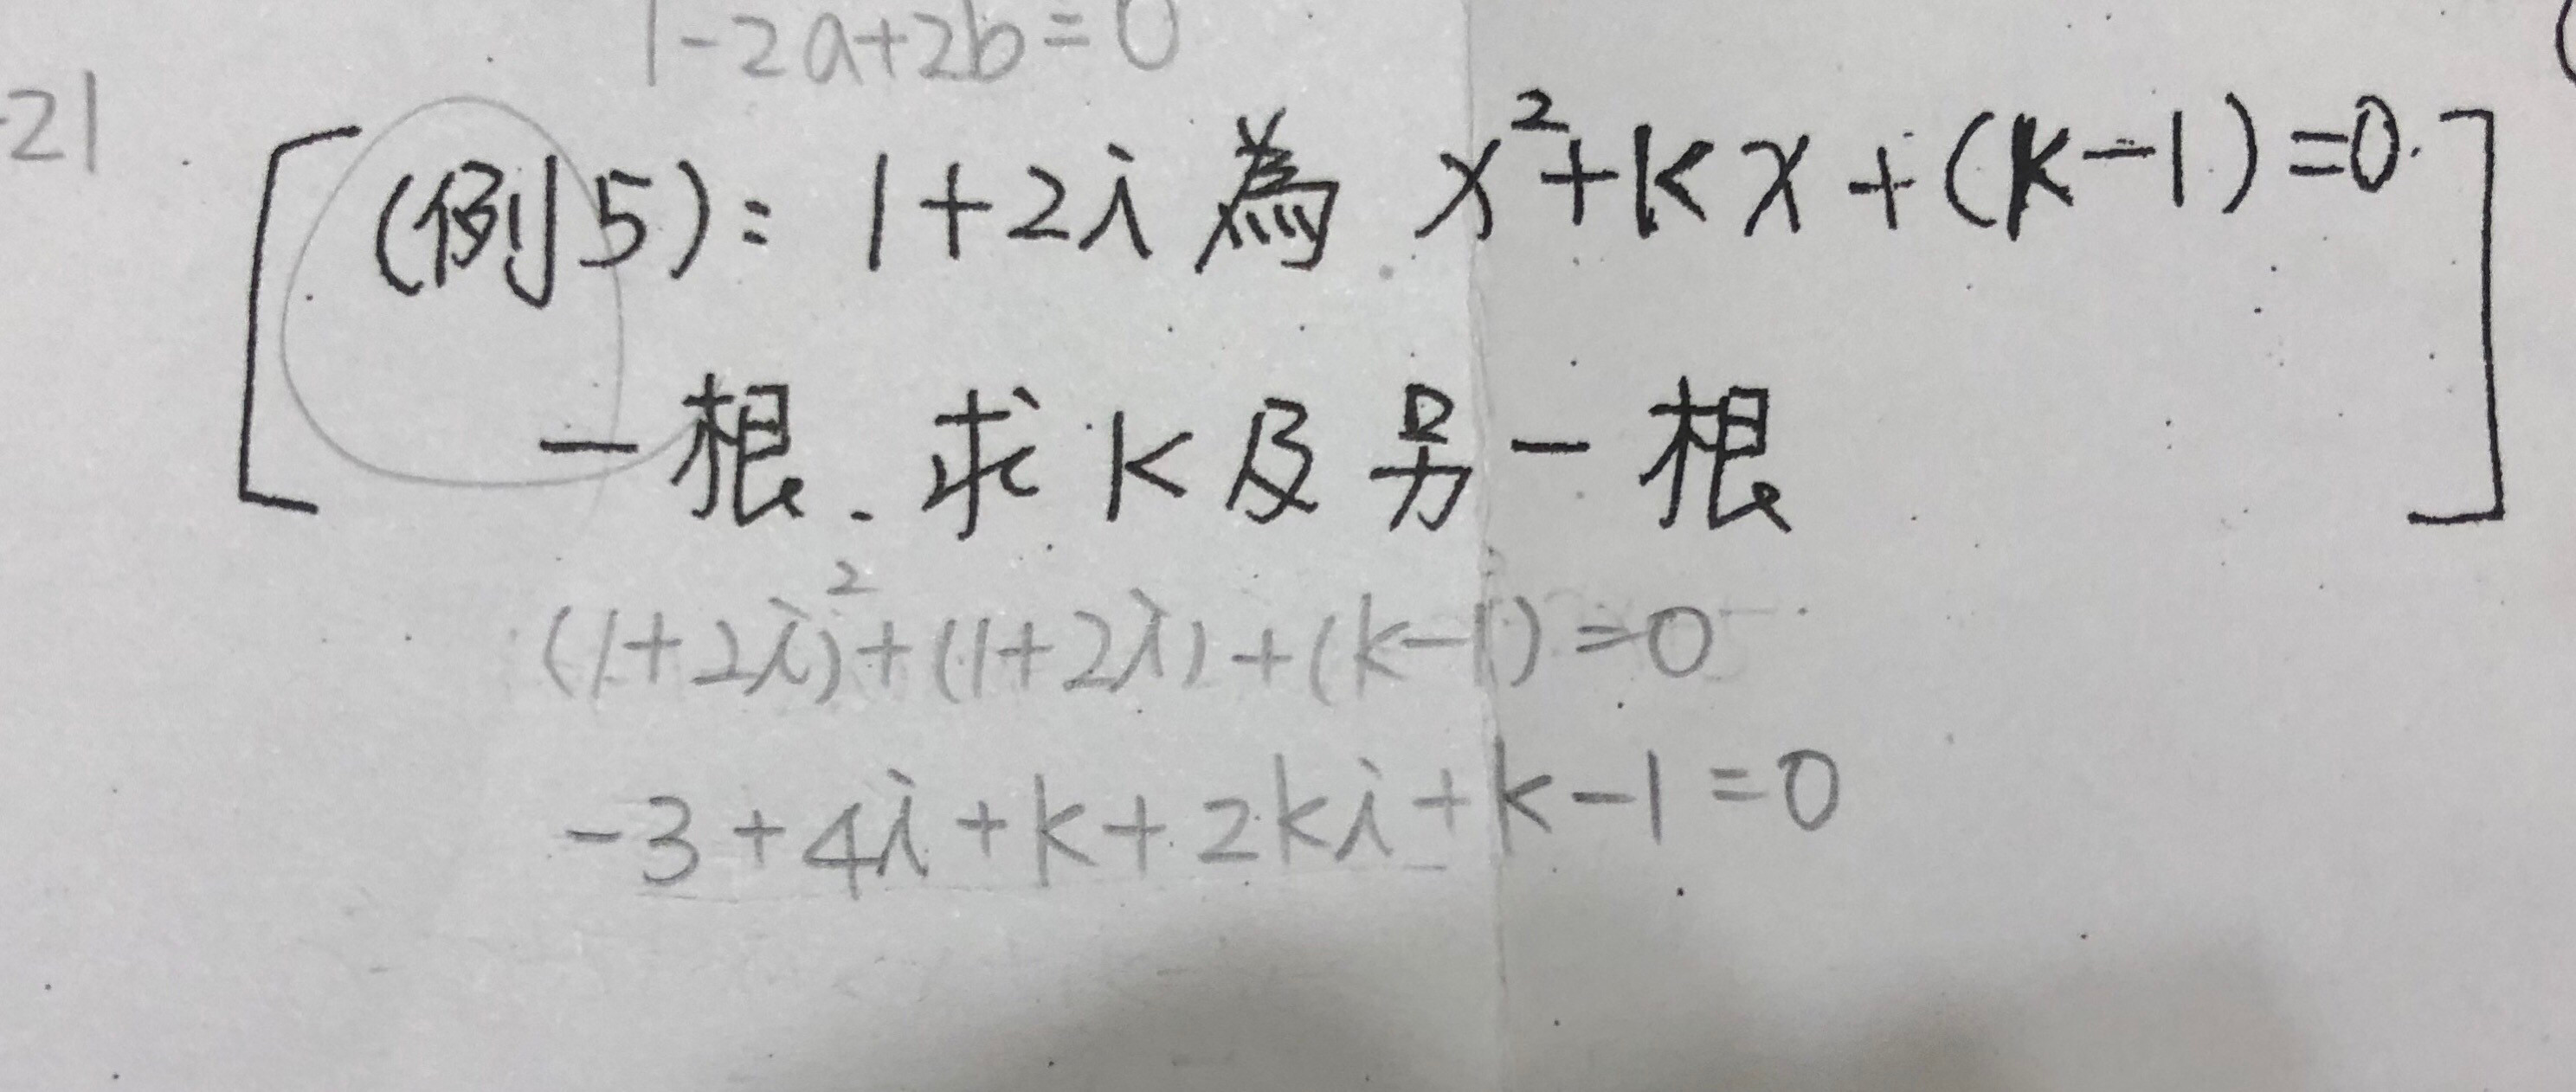 1-2a+2b=0
-21
(例5): 1+2i 為 x²+kx+(k-1)=0.
一根. 求 k 及另一根
(1+2i)²+(1+2i)+(k-1)=0
-3+4i+k+2ki+k-1=0